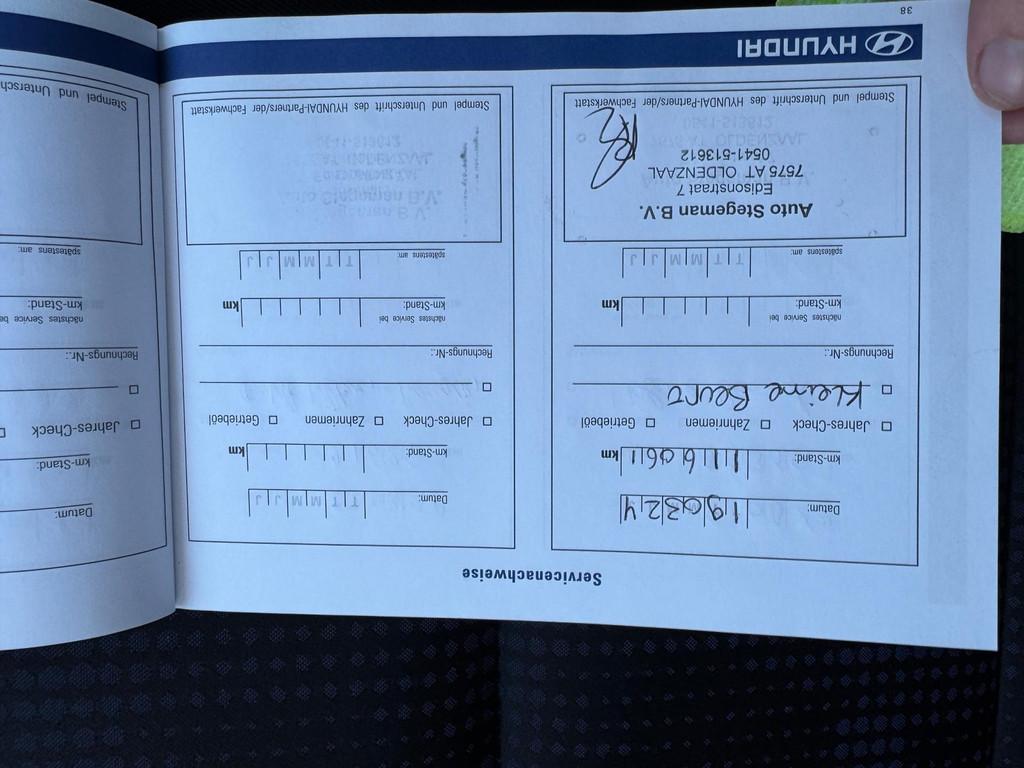 Servicenachweise
Datum: 190324
km-Stand: 116061 km
Jahres-Check Zahnriemen Getriebeöl
Kleine Beurt
Rechnungs-Nr.:
nächstes Service bei
km-Stand: km
spätestens am: T T M M J J
Auto Stegeman B.V.
Edisonstraat 7
7575 AT OLDENZAAL
0541-513612
Stempel und Unterschrift des HYUNDAI-Partners/der Fachwerkstatt
Datum: T T M M J J
km-Stand: km
Jahres-Check Zahnriemen Getriebeöl
Rechnungs-Nr.:
nächstes Service bei
km-Stand: km
spätestens am: T T M M J J
Stempel und Unterschrift des HYUNDAI-Partners/der Fachwerkstatt
HYUNDAI
38
Datum:
km-Stand:
Jahres-Check
Rechnungs-Nr.:
nächstes Service be
km-Stand:
spätestens am:
Stempel und Untersch